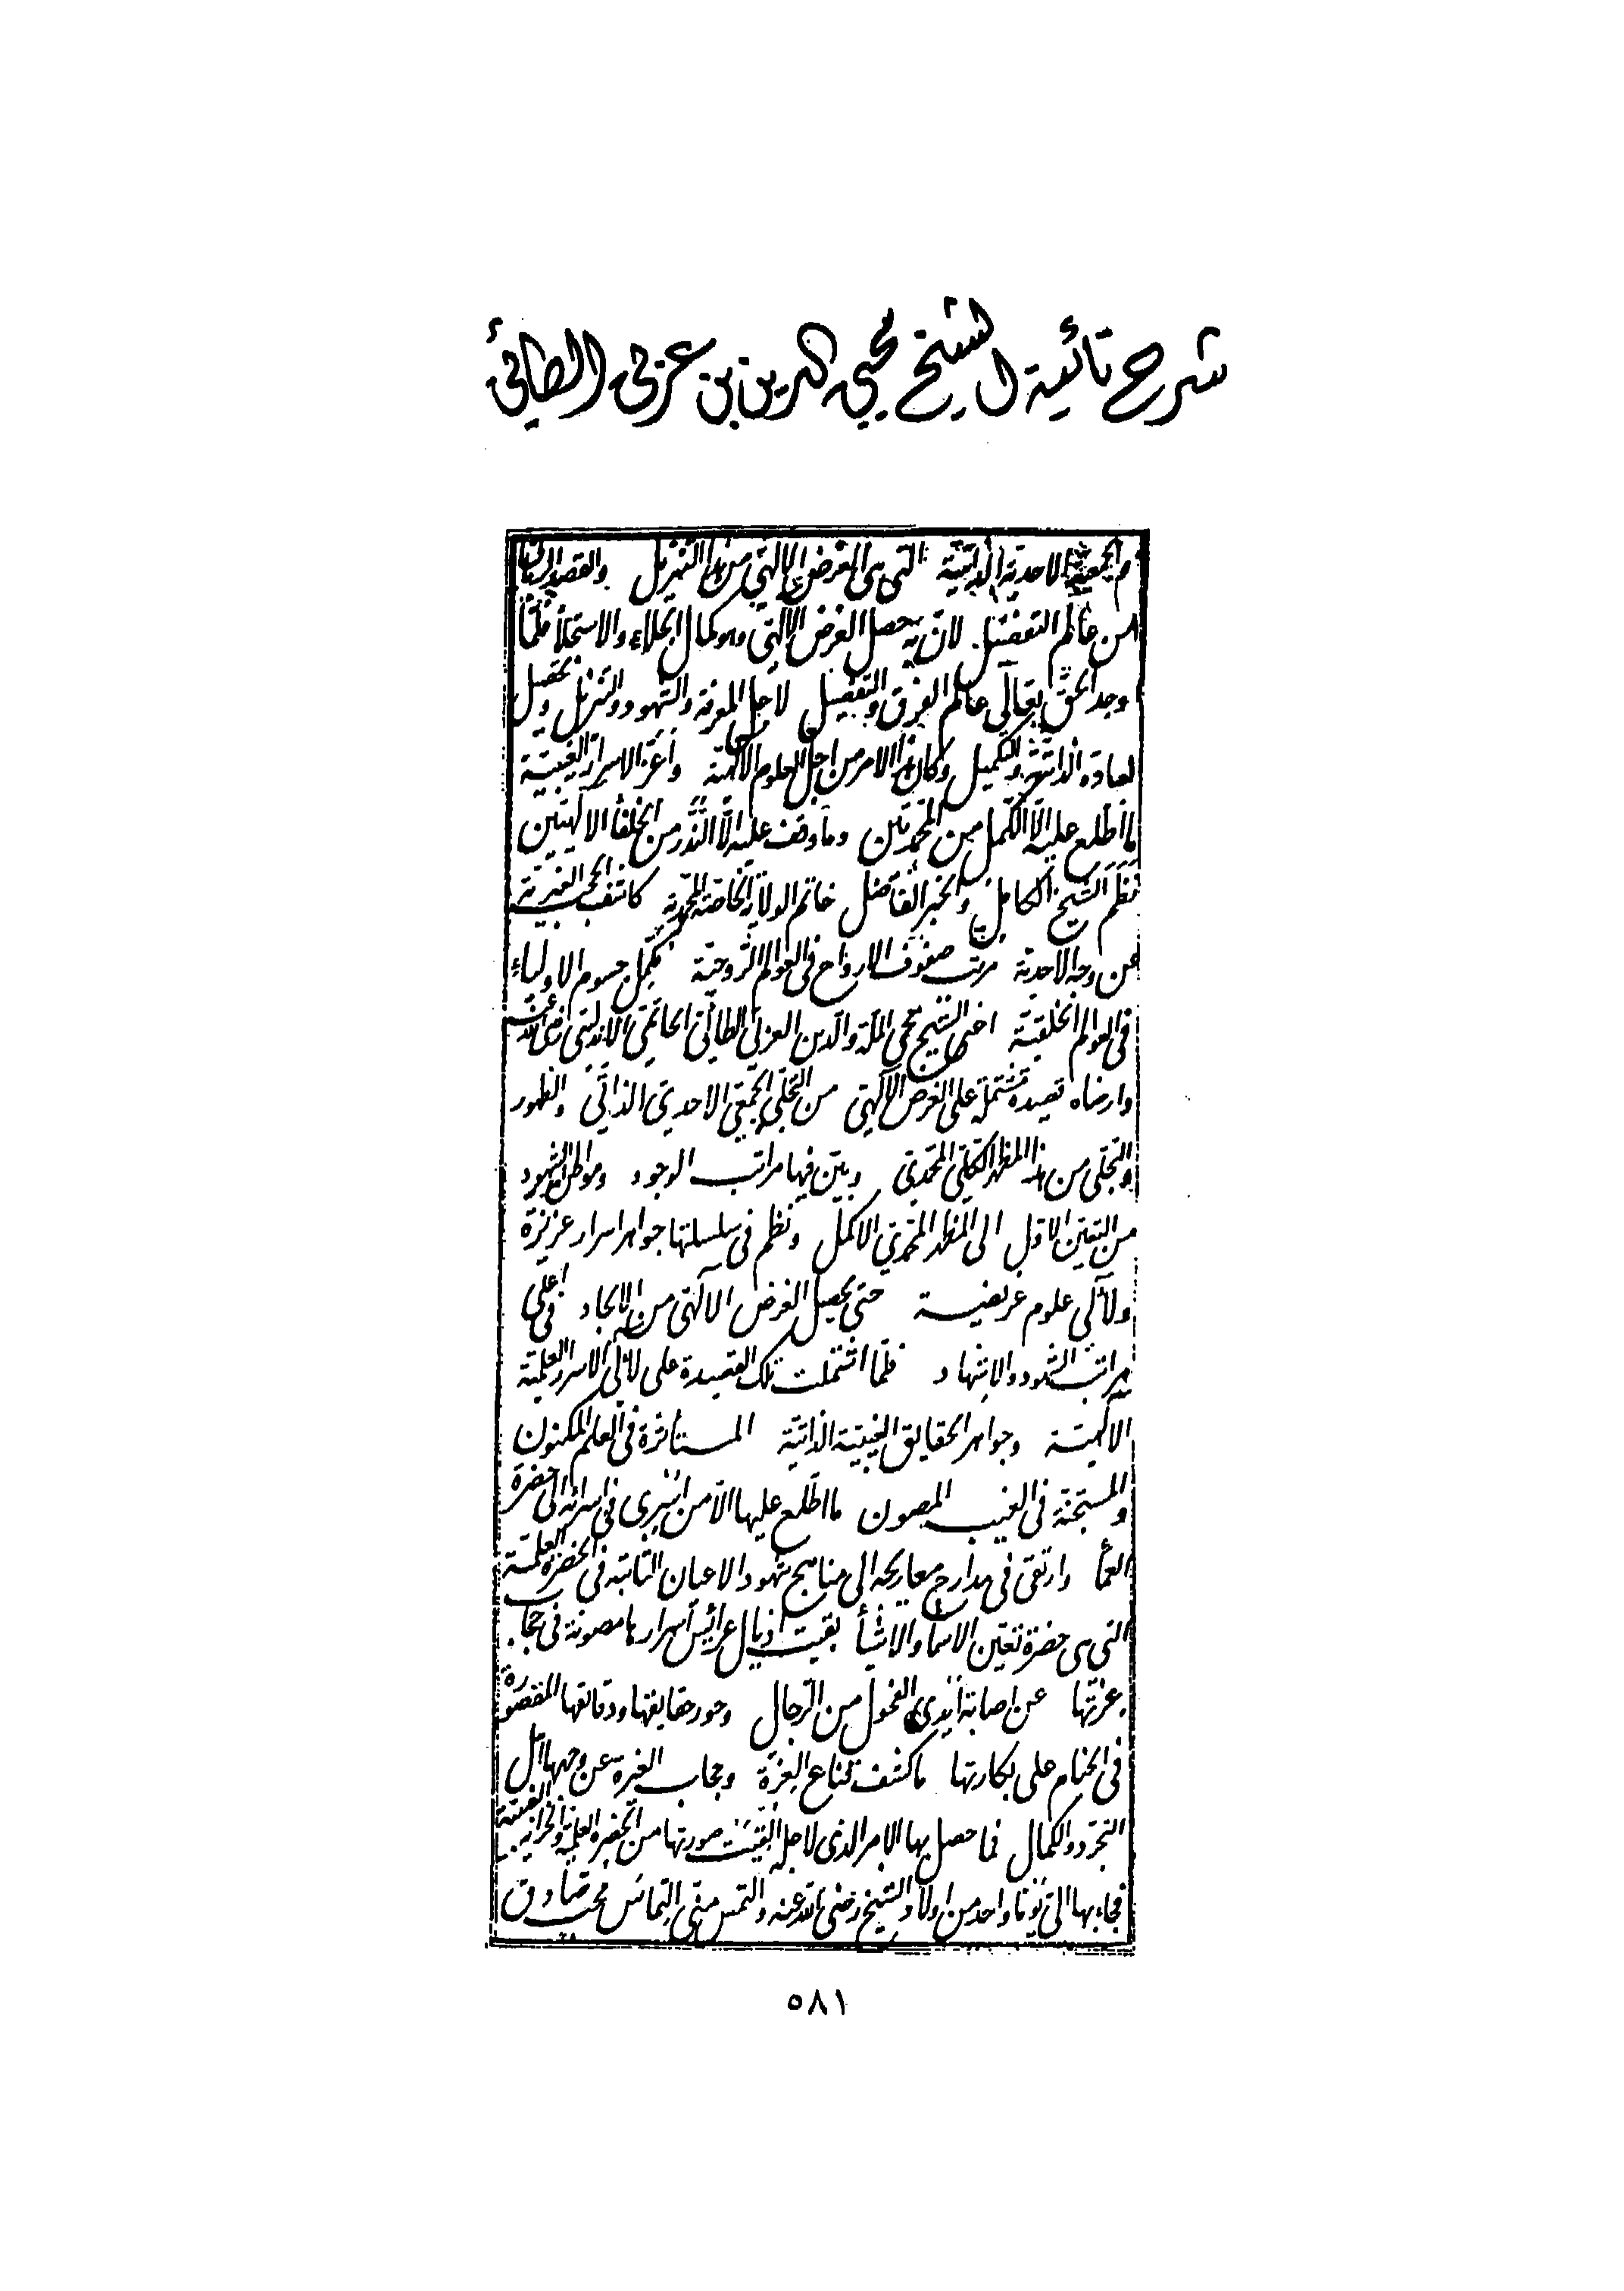 شرح تائية الشيخ محيى الدين بن عربى الطائى
الجمعية الاحدية الذاتية التى هى الغرض الالهى من التنزيل والقصد الربانى
من عالم التفضيل لان به حصل الغرض الالهى وهو كمال الجلاء والاستجلاء فلما
وجد الحق تعالى عالم الفرق والتفصيل لاجل المعرفة والشهود والتنزيل وتحصيل
الذاتية والتكميل وكان هذا الامر من اجل العلوم الالهية وأعز الاسرار الغيبية
ما اطلع عليه الا الكمل من المحمديين وما وقف عليه الا الندر من الخلفا الالهيين
نظم الشيخ الكامل والحبر الفاضل خاتم الولاية الخاصة المحمدية كاشف الحجب الغيرية
عن وجه الاحدية مرتب صفوف الارواح فى العوالم الروحية مكمل جسوم الاولياء
فى العوالم الخلقية اعنى الشيخ محى الملة والدين العربى الطائى الحاتمى الاندلسى رضى الله عنه
وارضاه قصيدة مشتملة على الغرض الالهى من التجلى الجمعى الاحدى الذاتى والظهور
والتجلى من هذا المظهر الكلى المحمدى وبين فيها مراتب الوجود ومواطن الشهود
من التعين الاول الى المظهر المحمدى الاكمل ونظم فى سلسلتها جواهر اسرار عزيزة
ولآلى علوم غريضية حتى يحصل الغرض الالهى من الايجاد فى اعلى
مراتب الشهود والاشهاد فلما اشتملت تلك القصيدة على لآلى الاسرار العلمية
الالهية وجواهر الحقايق الغيبية الذاتية المستأثرة فى العلم المكنون
والمستجنة فى الغيب المصون ما اطلع عليها الا من اسرى فى اسرائه الى حضرة
العمأ وارتقى فى مدارج معاريجه الى مناهج شهود الاعيان الثابتة فى الحضرة العلمية
التى هى حضرة تعين الاسما والاشيأ بقيت اذيال عرائس اسرارها مصونة فى حجاب
عزتها عن اصابة ايدى الفحول من الرجال وحور حقايقها ودقائقها المقصورة
فى الخيام على بكارتها ما كشف قناع العزة وحجاب الغيرة عن وجهها اهل
التجرد والكمال فما حصل بها الامر الذى لاجله القيت صورتها من الحضرة العلمية والخزانة الغيبية
فجاء بها الى يوما واحد من اولاد الشيخ رضى الله عنه والتمس منى التماس محب صادق
٥٨١